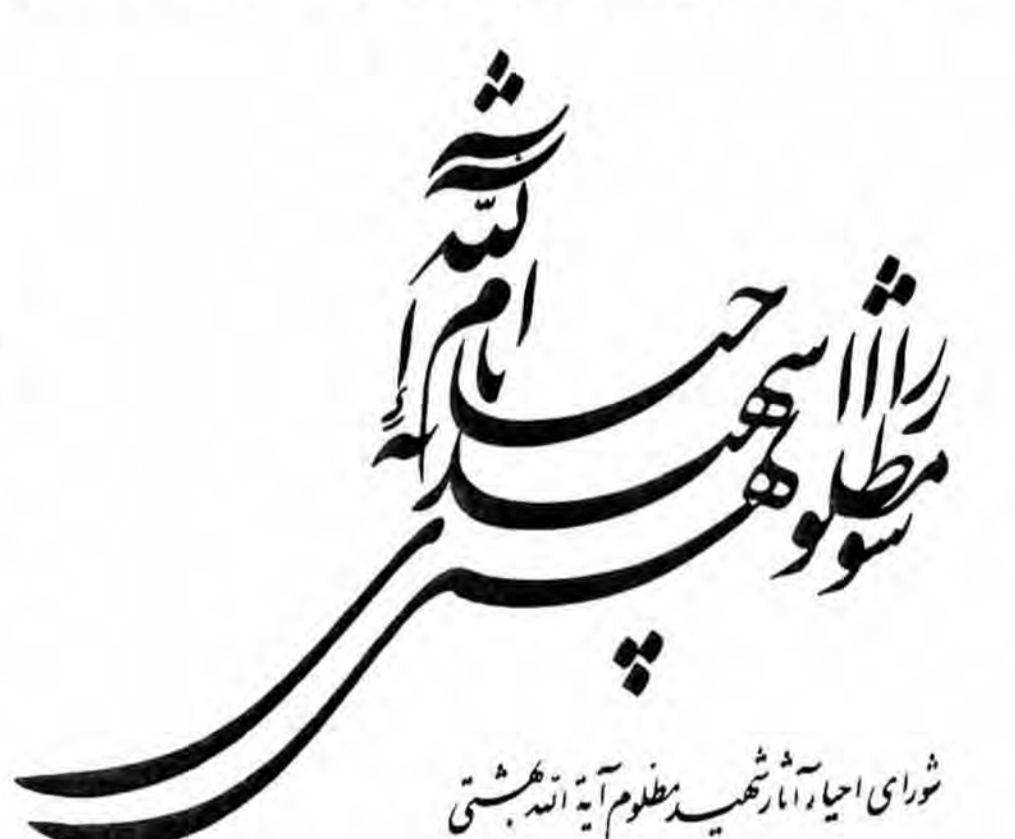 شورای احیاء آثار شهید مظلوم آیة الله بهشتی
شورای احیاء آثار شهید مظلوم آیة الله بهشتی